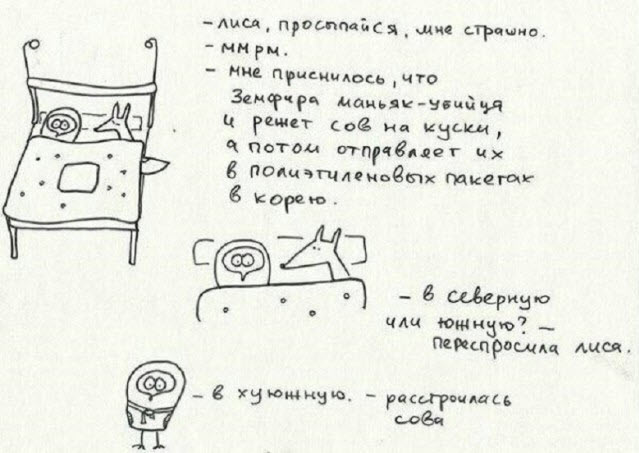 - лиса, просыпайся, мне страшно.
- ммрм.
- мне приснилось, что
Земфира маньяк-убийца
и режет сов на куски,
а потом отправляет их
в полиэтиленовых пакетах
в корею.
- в северную
или южную? -
переспросила лиса.
- в хуюжную. - расстроилась
сова